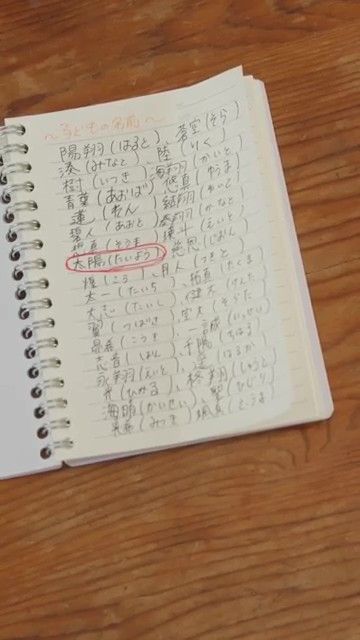 〜子どもの名前〜
陽翔(はると)、蒼空(そら)
湊(みなと)、陸(りく)
樹(いつき)、海翔(かいと)
青葉(あおば)、悠真(ゆうま)
蓮(れん)、結翔(ゆいと)
碧人(あおと)、奏翔(かなと)
(そうま)、瑛斗(えいと)
太陽(たいよう)、(しおん)
煌(こう)、月人(つきと)
太一(たいち)、拓真(たくま)
大志(たいし)、健太(けんた)
翼(つばさ)、(そらた)
(こうき)、一誠(いっせい)
(しおん)、千陽(ちはる)
永翔(えいと)、(はるか)
光(ひかる)、柊翔(しゅうと)
海晴(かいせい)、聖(ひじり)
(みつき)、颯真(そうま)